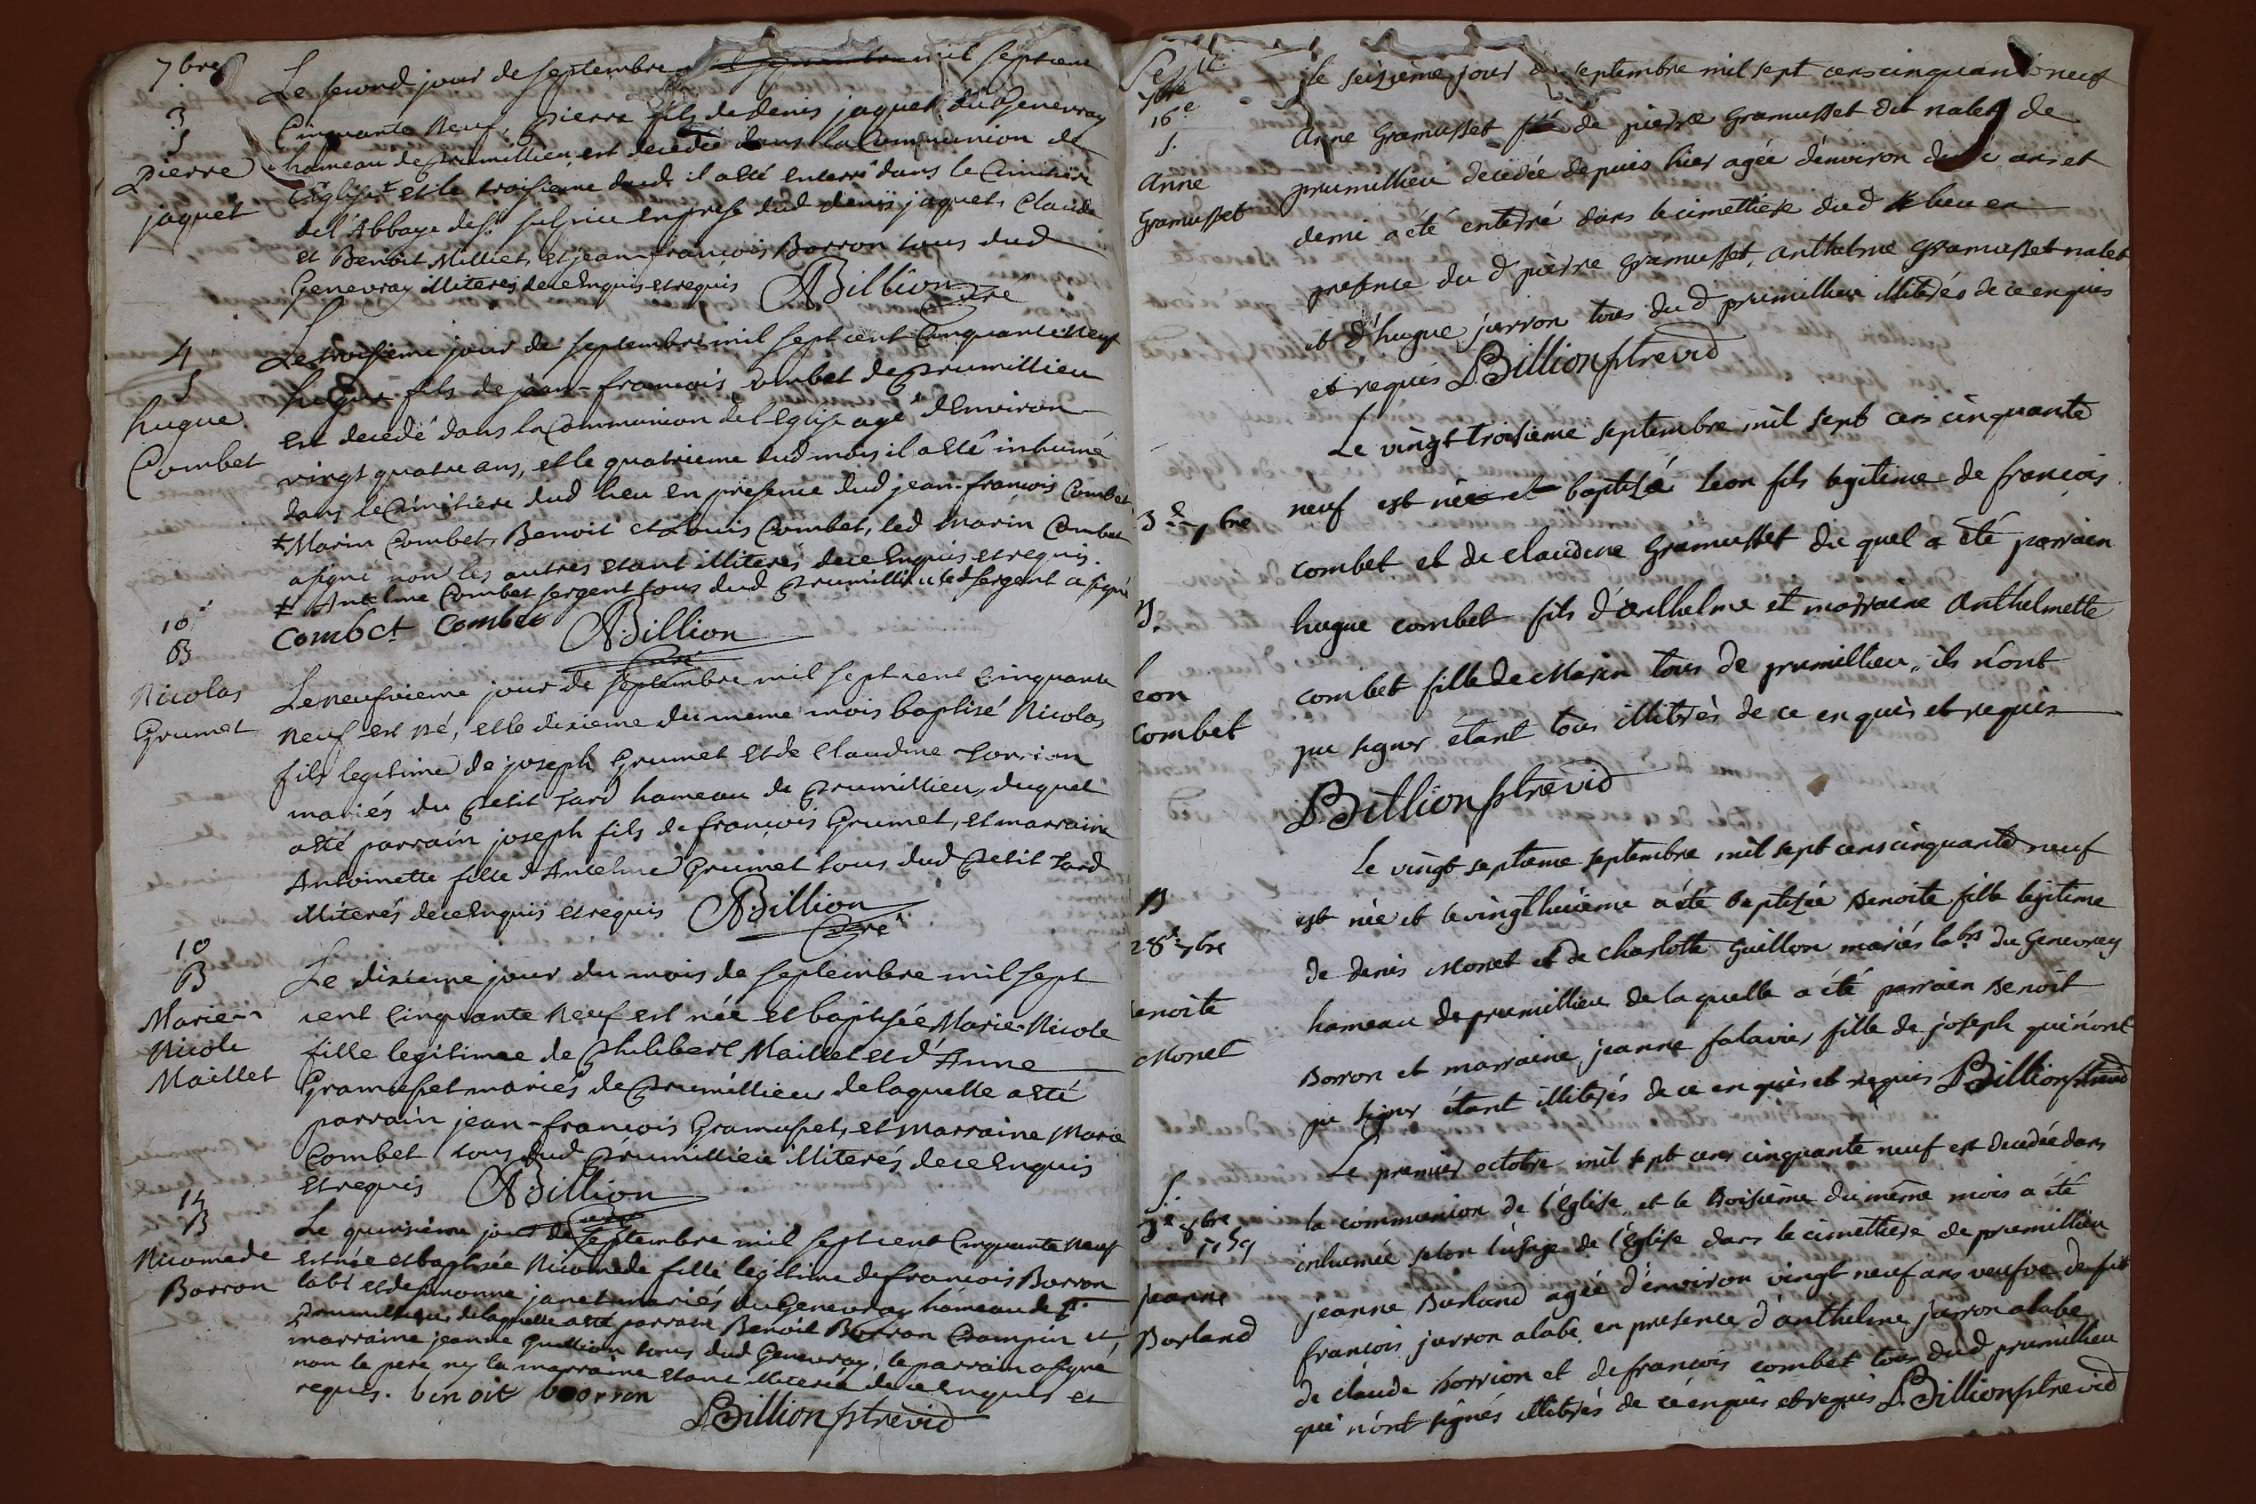 7bre
3
S
Pierre
jaquet
Le second jour de septembre mil sept cent
Cinquante neuf, Pierre fils de denis jaquet du Genevray
hameau de prumillieu, est decedé dans la Communion de
l'Eglise et le troisieme dud. il a esté enterré dans le Cimitiere
de l'Abbaye de St. sulpice en presce dud denis jaquet, Claude
et Benoit Milliet, et jean-francois Borron tous dud
Genevray illiterés de ce Enquis et requis ABillion
Curé
4
S
hugue
Combet
Le troisieme jour de septembre mil sept cent Cinquante neuf
hugue fils de jean-francois Combet de prumillieu
est decedé dans la Communion de l'Eglise agé d'Environ
vingt quatre ans, et le quatrieme dud mois il a esté inhumé
dans le Cimitiere dud lieu en presence dud jean-francois Combet
‡ Marin Combet, Benoit et Louis Combet, led Marin Combet
a signé non les autres estant illiterés de ce Enquis et requis.
‡ Antelme Combet sergent tous dud prumillieu led sergent a signé
Combet Combet ABillion
Curé
10
B
Nicolas
Grumet
Le neufvieme jour de septembre mil sept cent Cinquante
neuf est né, et le dixieme du meme mois baptisé Nicolas
fils legitime de joseph Grumet et de Claudine
mariés du petit Tard hameau de prumillieu, duquel
a esté parrain joseph fils de francois Grumet, et marraine
Antoinette fille d'Antelme Grumet tous dud petit Tard
illiterés de ce Enquis et requis ABillion
Curé
10
B
Marie
Nicole
Maillet
Le dixieme jour du mois de septembre mil sept
cent Cinquante neuf est née et baptisée Marie Nicole
fille legitimee de philibert Maillet et d'Anne
Gramusset mariés de prumillieu de laquelle a esté
parrain jean-francois Gramusset, et marraine Marie
Combet tous dud prumillieu illiterés de ce Enquis
et requis ABillion
Curé
B
Nicomede
Borron
Le quinsieme jour de septembre mil sept cent Cinquante neuf
est née et baptisée Nicomede fille legitime de francois Borron
labr et de janet mariés du Genevray hameau de
prumillieu de laquelle a esté parrain Benoit Borron et
marraine jeanne Guillion tous dud Genevray, le parrain a signé
non le pere ny la marraine estant illiterés de ce Enquis et
requis. benoit borron
Billion ptre vic
7bre
16e
S.
Anne
Gramusset
le seizieme jour de septembre mil sept cens cinquante neuf
Anne Gramusset de pierre Gramusset dit nalet de
prumillieu decedée depuis hier agée d'environ ans et
demi a été enterré dans le cimettiere dud lieu en
presence du d pierre gramusset, anthelme Gramusset nalet
et d'hugue jarron tous du d prumillieu illiterés de ce enquis
et requis Billion ptre vic
3e 7bre
B.
Leon
Combet
Le vingt troisieme septembre mil sept cens cinquante
neuf est né et baptisé Leon fils legitime de francois
combet et de claudine Gramusset du quel a été parrain
hugue combet fils d'anthelme et marraine Anthelmette
combet fille de Marin tous de prumillieu, ils n'ont
pu signer étant tous illiterés de ce enquis et requis
Billion ptre vic
B
28e 7bre
enoite
Monet
Le vingt septieme septembre mil sept cens cinquante neuf
est née et le vingt huitieme a été baptisée Benoite fille legitime
de denis Monet et de charlotte Guillon mariés labrs du Genevrey
hameau de prumillieu de laquelle a été parrain Benoit
Borron et marraine jeanne falavier fille de joseph qui n'ont
pu signer étant illiterés de ce enquis et requis Billion ptre vic
S.
3e 8bre
1759
jeanne
Borland
Le premier octobre mil sept cens cinquante neuf est decedée dans
la communion de l'église, et le troisieme du même mois a été
inhumée selon l'usage de l'église dans le cimettiere de prumillieu
jeanne Borland agée d'environ vingt neuf ans veufve de fut
francois jarron alabe, en presence d'anthelme jarron alabe
de claude et de francois combet tous dud prumillieu
qui n'ont signés illiterés de ce enquis et requis Billion ptre vic